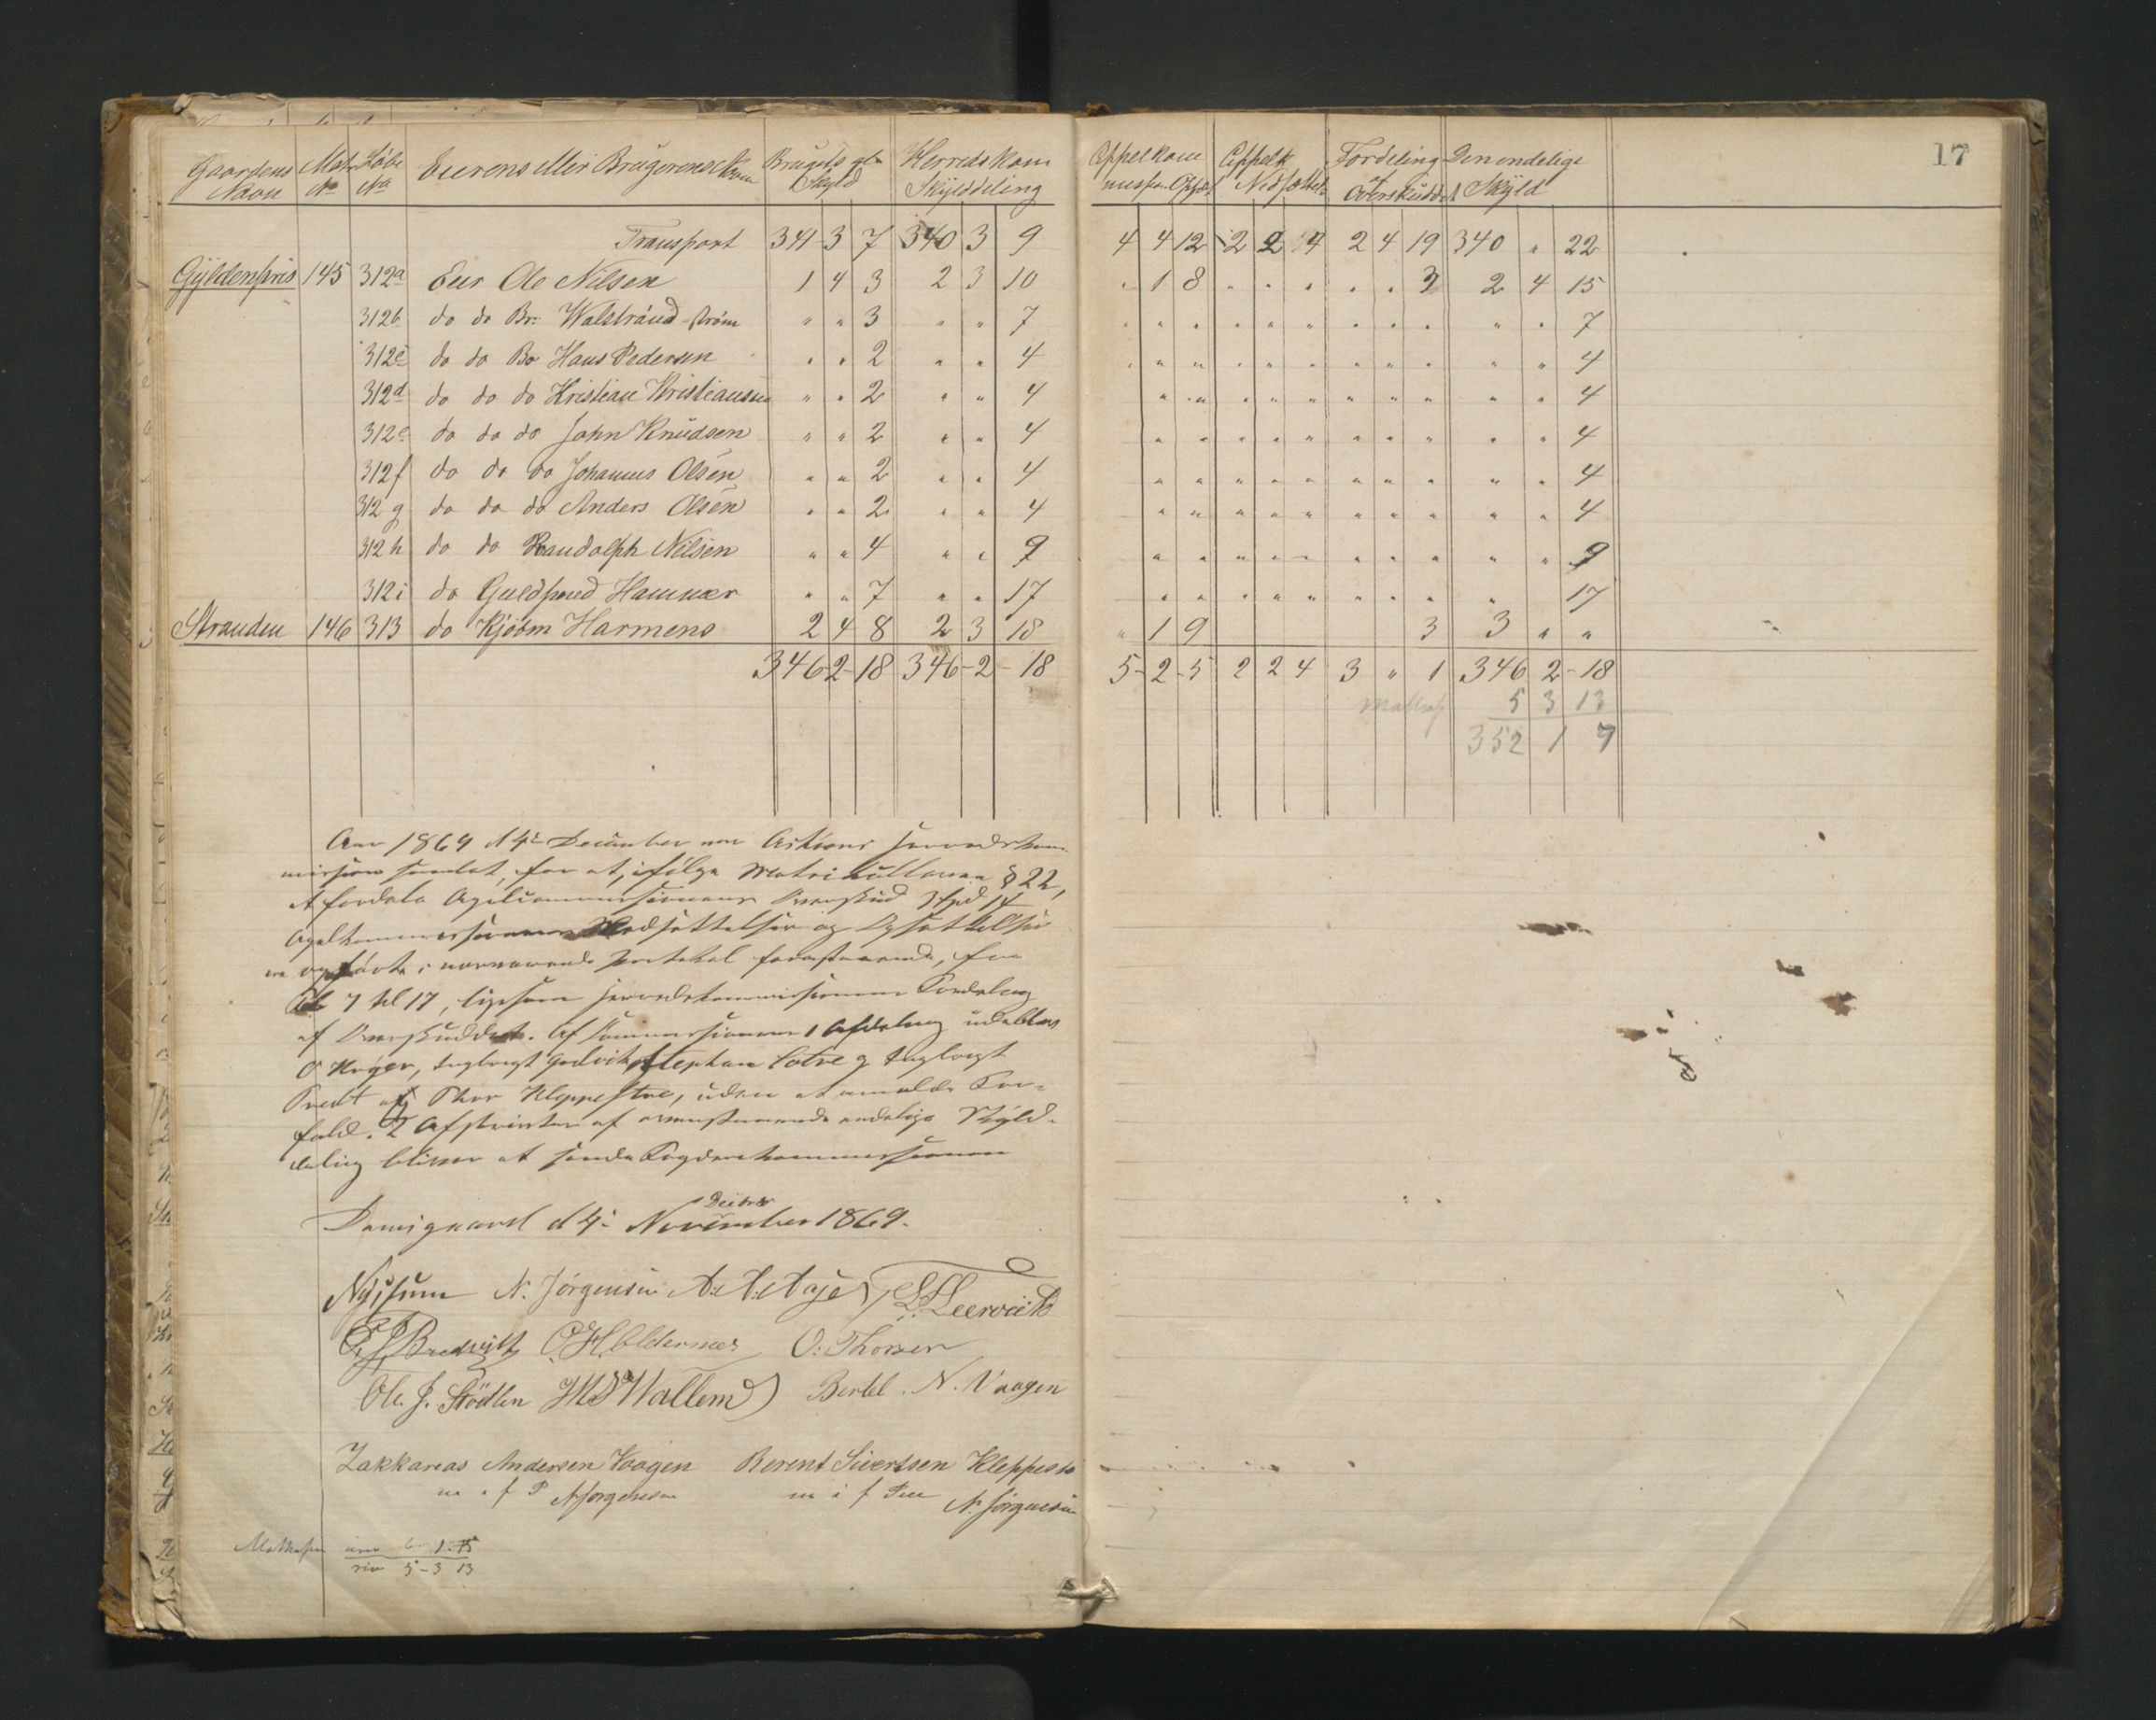 17
Gaardens Navn Matr No Löbe No Eierens eller Brugerens Navn Brugets gl. Skyld Herredskom Skylddeling Appelkommission Opsat Appelk Nedsættelse Fordeling af Overskuddet Den endelige Skyld
Transport 341 3 7 340 3 9 4 4 12 2 2 4 2 4 19 340 " 22
Gyldenpris 145 312a Eier Ole Nilsen 1 4 3 2 3 10 " 1 8 " " " " " 3 2 4 15
312b do do Br: Walstrand-strøm " " 3 " " 7 " " " " " " " " " " " 7
312c do do Br Hans Pedersen " " 2 " " 4 " " " " " " " " " " " 4
312d do do do Kristian Kristiansen " " 2 " " 4 " " " " " " " " " " 4
312e do do do John Knudsen " " 2 " " 4 " " " " " " " " " " 4
312f do do do Johannes Olsen " " 2 " " 4 " " " " " " " " " " 4
312g do do do Anders Olsen " " 2 " " 4 " " " " " " " " " " 4
312h do do Randolph Nilsen " " 4 " " 9 " " " " " " " " " " 9
312i do Guldsmed Hammer " " 7 " " 17 " " " " " " " " " 17
Stranden 146 313 do Kjöbm Harmens 2 4 8 2 3 18 " 1 9 3 3 " "
346-2-18 346-2-18 5-2-5 2 2 4 3 " 1 346 2-18
5 3 13
352 1 7
Aar 1869 d 4de December var Askøens Herredskom-
mission samlet, for at, ifølge Matrikulloven § 22,
at fordele Apelkommissionens Overskud 3 Spd 1 ß
Apelkommissionens Nedsættelser og Opsættelser
ere opførte i nærværende Protokol foranstaaende, fra
7 til 17, ligesom Herredskommissionens Fordeling
af Overskuddet. Af Kommissionens 1 Afdeling udeblev
O Krøger, Ingbrigt Godvik, Stephan Lotve g Ingbrigt
Tvedt og Thor Kleppestøe, uden at anmelde For-
fald. 2 Afskrifter af ovenstaaende endelige Skyld-
deling bliver at sende Fogderikommissionen
Damsgaard d 4de November 1869.
Decbr
N. Jörgensen
O. Thorsen
Bertel. N. Vaagen
Zakkarias Andersen Vaagen Berent Sivertsen Kleppestø
m i f P N Jörgensen m i f Pen N. Jörgensen
6-1-15
5-3 13